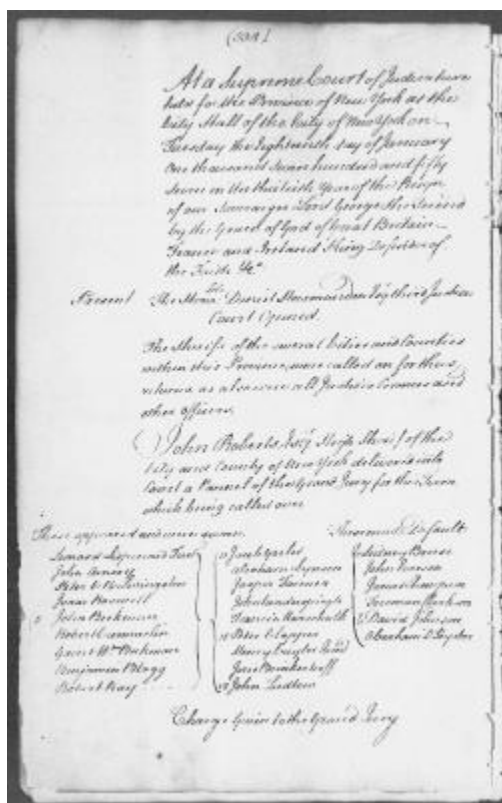 At a Supreme Court of Judicature
held for the Province of New York at the
City Hall of the City of New York on
Tuesday the Eighteenth day of January
One thousand seven hundred and fifty
seven in the thirtieth Year of the Reign
of our Sovereign Lord George the Second
by the Grace of God of Great Britain
France and Ireland King Defender of
the Faith &c
Present The Honble Daniel Horsmanden Esqr third Justice
Court Opened
The Sheriffs of the several Cities and Counties
within this Province were called on for their
returns as also were all Justices Coroners and
other officers
John Roberts Esqr High Sheriff of the
City and County of New York delivered into
Court a Pannel of the Grand Jury for this Term
which being called over
These appeared and were sworn These made Default
Leonard Lispenard
John
Peter V B Livingston
Isaac
John Beekman
Robert
Gerrit Wm Beekman
Benjamin Blagg
Robert Ray
Jacob
Abraham Lynsen
Jasper Farmer
John
Francis
Peter
Henry Cuyler Junr
10 John Ludlow
Sidney Breese
John
James
David Johnson
Abraham
Charge Given to the Grand Jury